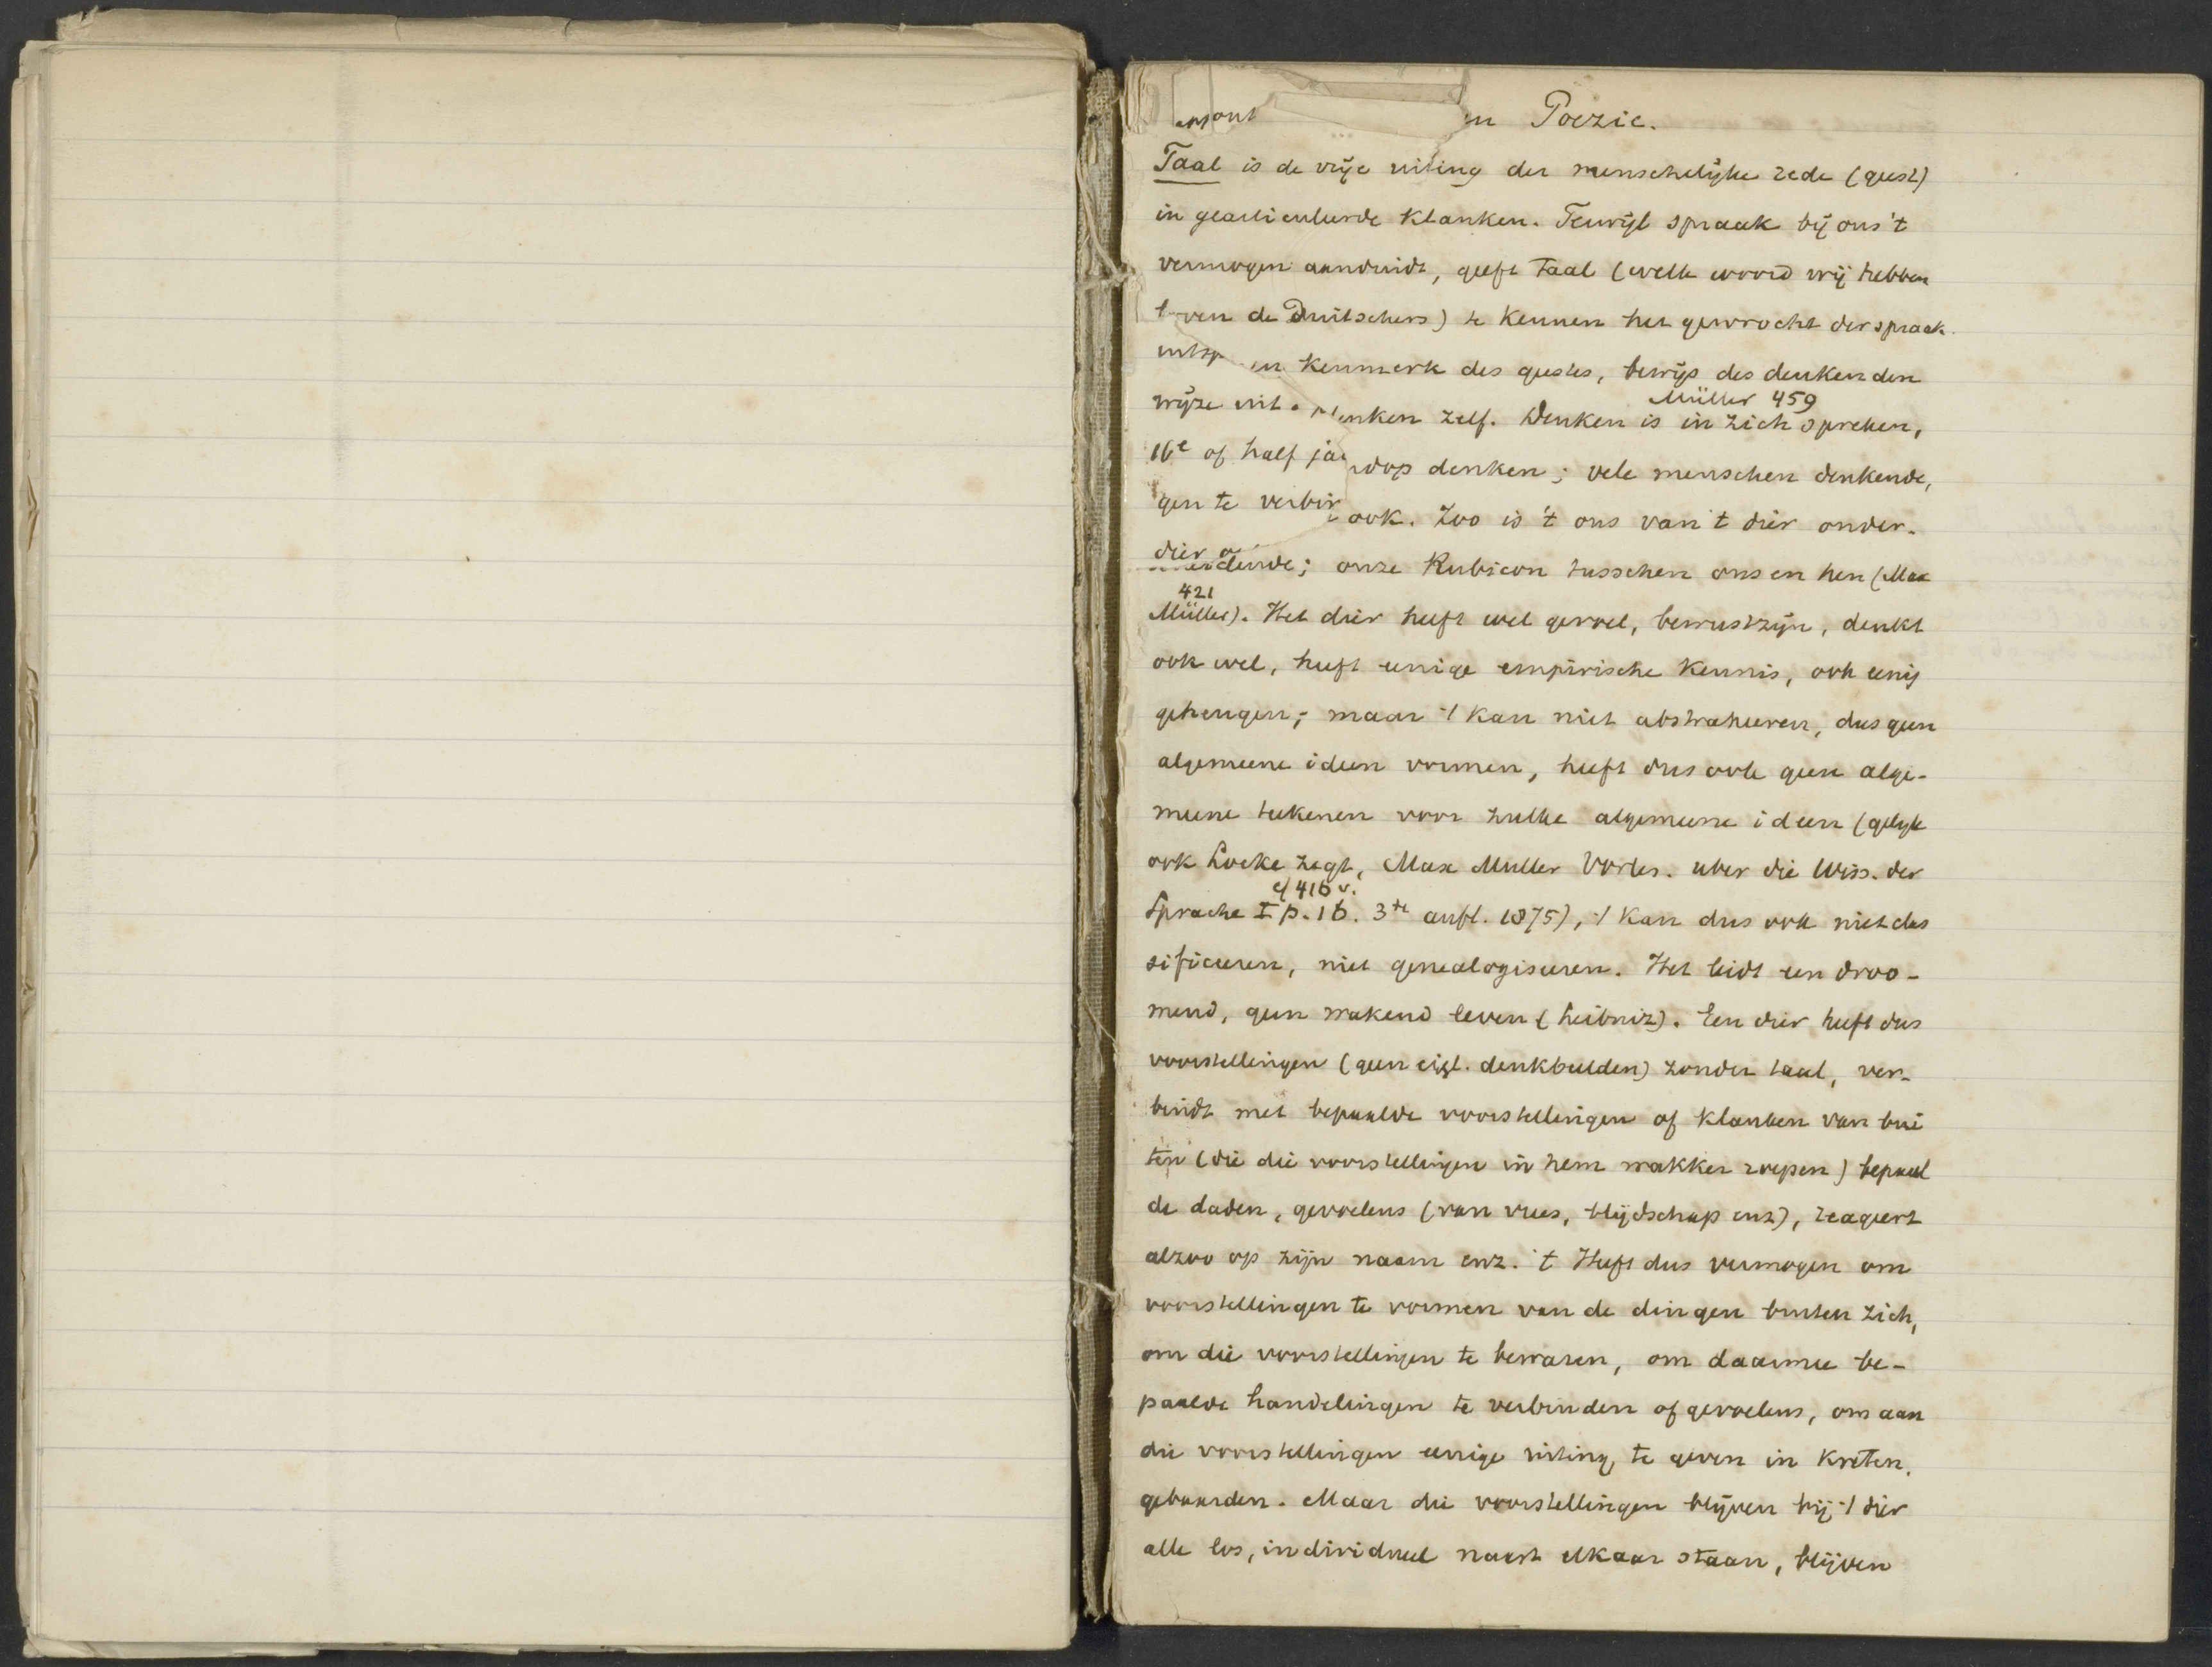 en Poezie.
Taal is de vrije uiting der menschelijke rede (geest)
in gearticuleerde klanken. Terwijl spraak bij ons 't
vermogen aanduidt, geeft taal (welk woord wij hebben
boven de Duitschers) te kennen het gewrocht der spraak.
en kenmerk des geestes, bewijs des denkenden
Müller 459
wijze uit denken zelf. Denken is in zich spreken,
16e of half jaa denken; vele menschen denkende,
gen te verbin ook. Zoo is 't ons van 't dier onder-
dier deinde; onze Rubicon tusschen ons en hen (Max
421
Müller). Het dier heeft wel gevoel, bewustzijn, denkt
ook wel, heeft eenige empirische kennis, ook eenig
geheugen; maar 't kan niet abstraheeren, dus geen
algemeene ideen vormen, heeft dus ook geen alge-
meene teekenen voor zulke algemeene ideen (gelijk
ook Locke zegt, Max Muller Vorles. uber die Wiss. der
cf 416 v.
Sprache I p. 16. 3te aufl. 1875), 't kan dus ook niet clas
sificeeren, niet genealogiseeren. Het leidt een droo-
mend, geen wakend leven (Leibniz). Een dier heeft dus
voorstellingen (geen eigl. denkbeelden) zonder taal, ver-
bindt met bepaalde voorstellingen of klanken van bui
ten (die die voorstellingen in hem wakker roepen) bepaal
de daden, gevoelens (van vrees, blijdschap enz), reageert
alzoo op zijn naam enz. 't Heeft dus vermogen om
voorstellingen te vormen van de dingen buiten zich,
om die voorstellingen te bewaren, om daarmee be-
paalde handelingen te verbinden of gevoelens, om aan
die voorstellingen eenige uiting te geven in kreten,
gebaarden. Maar die voorstellingen blijven bij 't dier
alle los, individueel naast elkaar staan, blijven